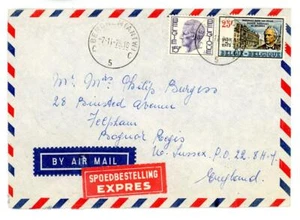 5
25F
BELGIË-BELGIQUE
Mr. Mrs Philip Burgess
28 Binsted Avenue
Felpham
Bognor Regis
W. Sussex. P.O.22.8H.J
England.
BY AIR MAIL
SPOEDBESTELLING
EXPRES